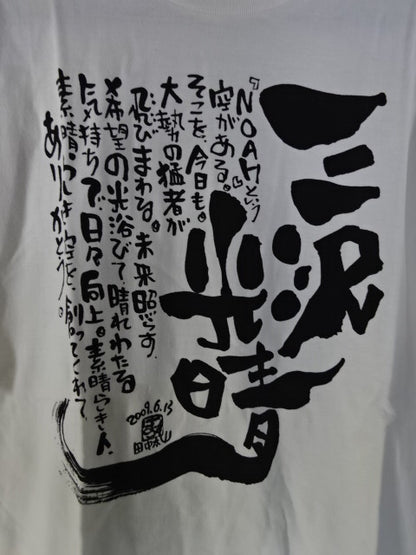 三沢光晴
『NOAHという
空がある。』
そこを、今日も。
大勢の猛者が
飛びまわる。未来照らす、
希望の光浴びて、晴れわたる
気持ちで日々向上。素晴らしき人、
素晴らしき空を、創ってくれて
ありがとう。
2009.6.13
田中太山